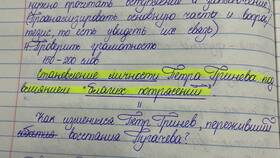 нужно прочитать вступление и заключение
(проанализировать основную часть и вора
тезис, то есть увидеть их связь)
4. Проверить грамотность
150-200 слов
Становление личности Петра Гринева под
влиянием "благих потрясений"
=
Как изменился Пётр Гринёв, переживший
восстания Пугачева?